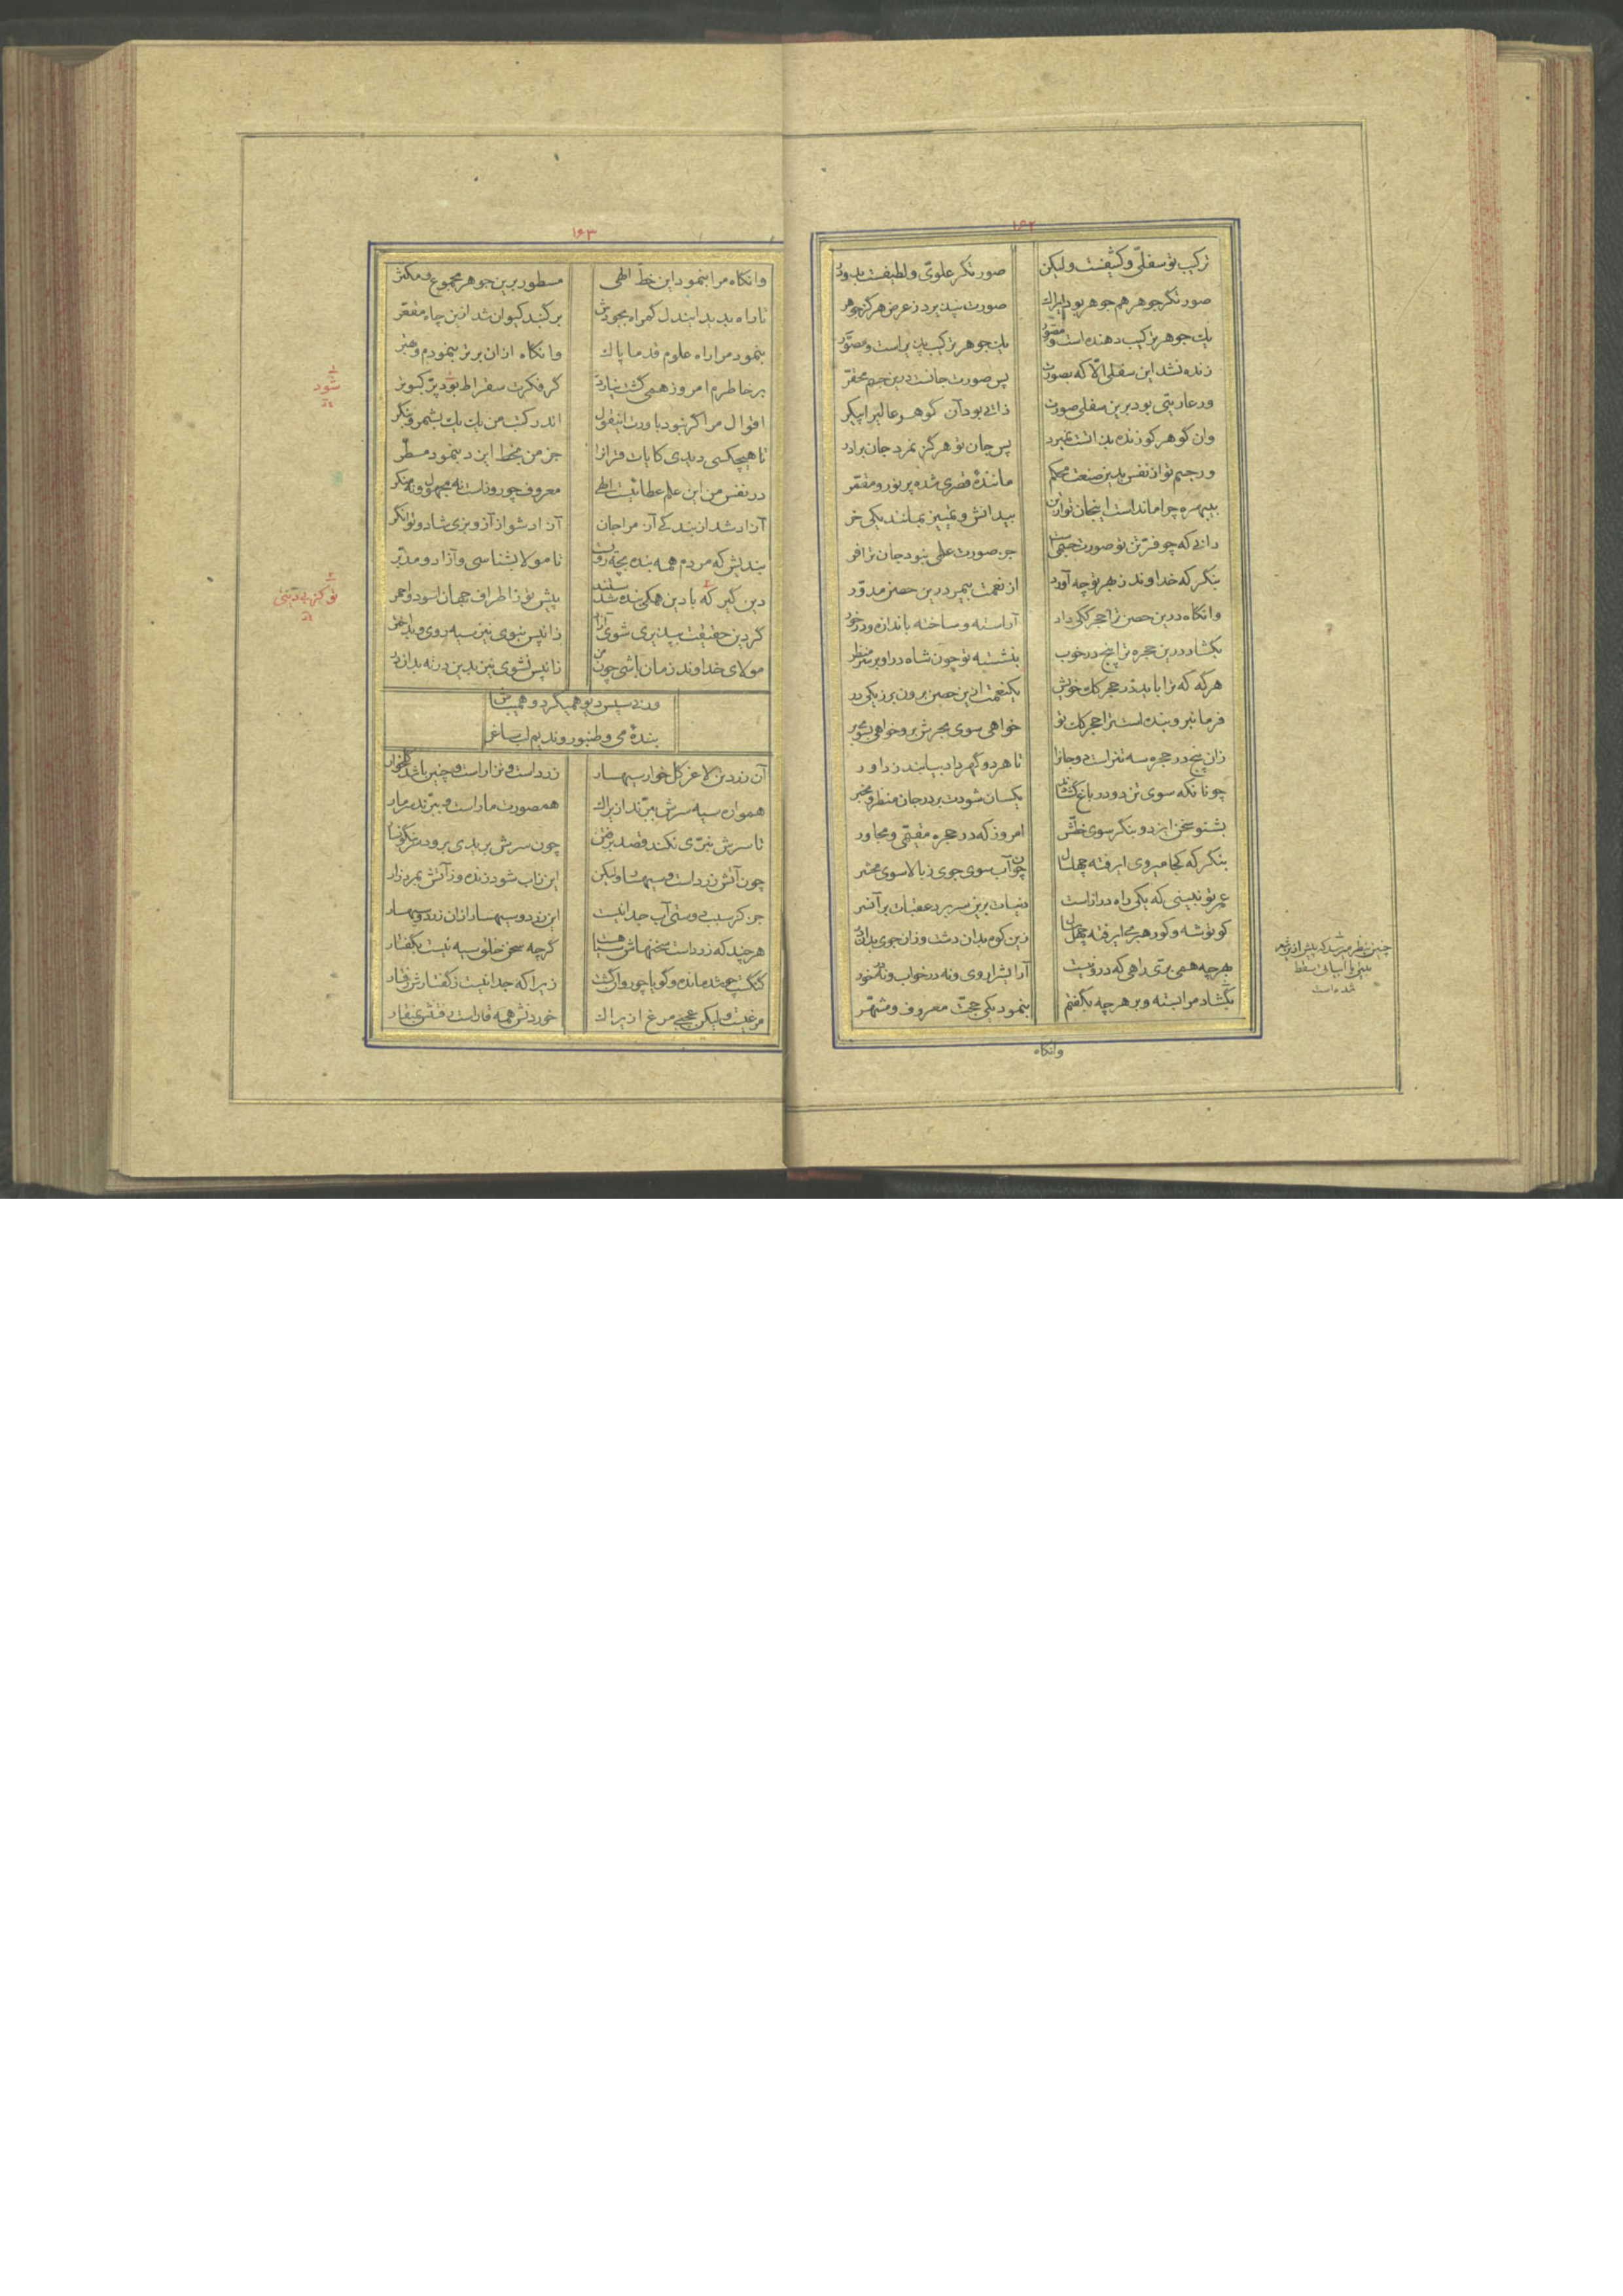 ۱۶۲
ترکیب تو سفلی و کثیفست ولیکن صورتگر علوی و لطیفست بدو در
صورتگر جوهر هم جوهر بود ایراک صورت نپذیرد ز عرض هرگز جوهر
یک جوهر ترکیب دهنده است و مصور یک جوهر ترکیب پذیر است و مصور
زنده نشد این سفلی الا که بصورت پس صورت جانست درین جسم محقر
ور عاریتی بود برین سفلی صورت ذاتی بود آن گوهر عالی را پیکر
وان گوهر کو زنده بذاتست نمیرد پس جان تو هرگز نمرد جان برادر
ور جسم تو از نفس بدین صنعت محکم مانندهٔ قصری شده پر نور و مقعر
بیبهره چرا مانداست این جان تو زین بیدانش و تمییز بمانند یکی خر
دانی که چو فربی تو صورت جسمی جز صورت علمی نبود جان ترا فر
بنگر که خداوند ز بهر تو چه آورد از نعمت بیمر درین حصن مدور
وانگاه درین حصن ترا حجرگکی داد آراسته و ساخته باندازه و در خور
بگشاد درین حجره ترا پنج در خوب بنشسته تو چون شاه در او بر سر منظر
هرگه که ترا باید در حجرگک خویش یکنعمت ازین حصن برون بر ز یکی در
فرمانبر و بنده است ترا حجرگک تو خواهی سوی بحرش بر و خواهی سوی بر
زان پنج در حجره سه تنراست و دو جانرا تا هر دو گهر داد بیابند ز داور
چونانکه سوی تن دو در باغ گشاده یکسان شودت بر در جان منظر و مخبر
بشنو سخن ایزد و بنگر سوی خطش امروز که در حجره مقیمی و مجاور
بنگر که کجا میروی ای رفته چهل سال چون آب سوی جوی ز بالا سوی محشر
عمر تو نبینی که یکی راه درازاست دنیات برین سر بر و عقبات بر آنسر
کو توشه و کو رهبر ای رفته چهل سال زین کوه بدان دشت وزان جوی بدان
بهر چه همی بری راهی که درو نیست آرایش راوی و نه در خواب و نه خود
بگشاد مرا بسته و بر هر چه بگفتم بنمود یکی حجت معروف و مشهر
وانگاه
چنین بنظر میرسد که پیش از این شعر
بیتی یا ابیاتی سقط
شده است
۱۶۳
وانگاه مرا بنمود این خط الهی مسطور برین جوهر مجموع و مکثر
تا راه پدید ایندل گمراه بجودش بر گنبد کیوان شد ازین چاه مقعر
بنمود مرا راه علوم قدما پاک وانگاه ازان برتر بنمودم و بهتر
بر خاطرم امروز همی گشت نیارد گر فکرت سقراط بود پر کبوتر
اقوال مرا گر نبود باورت اینقول اندر کتب من یک یک بشمر و بنگر
تا هیچکسی دیدی کایات قران را جز من بخط ایزد بنمود مسطر
در نفس من این علم عطائیست الهی معروف چو روز است نه مجهول و نه منکر
آزاد شد از بندگی آز مرا جان آزاد شو از آز و بزی شاد و توانگر
بندیش که مردم همه بنده بچه رویند تا مولا بشناسی و آزاد و مدبر
دین گیر که با دین همگی بنده شدستند پیش تو ز اطراف جهان اسود و احمر
گر دین حقیقت بپذیری شوی آزاد زانپس نبوی نیز سیه روی و بداختر
مولای خداوند زمان باشی چون من زانپس نشوی نیز بدین در نه بدان در
ورنی سپس دیو همیگرد و همیباش
بندهٔ می و طنبور و ندیم لب ساغر
آن زرد تن لاغر گل خوار سیهسار زرد است و نزار است و چنین باشد گلخوار
همواره سیه سرش ببرند ازیراک همصورت مار است و ببرند سر مار
تا سرش نبری نکند قصد برفتن چون سرش بریدی برود سر نگونسار
چون آتش زرد است و سیهسار ولیکن این زاب شود زنده وز آتش بمرد زار
جز کرسب و دوستی آب جدا نیست این زرد و سیهسار ازان زرد و سیهسار
هرچند که زرداست سخنهاش سیاهست گرچه سخن خلق سیه نیست بگفتار
گنگست چو شد مانده و گویا چو روان گشت زیرا که جدا نیست ز گفتارش رفتار
مرغیست ولیکن عجبی مرغ ازیراک خوردنش همه قار است و رفتنش بمنقار
شود
تو کز پی دینی